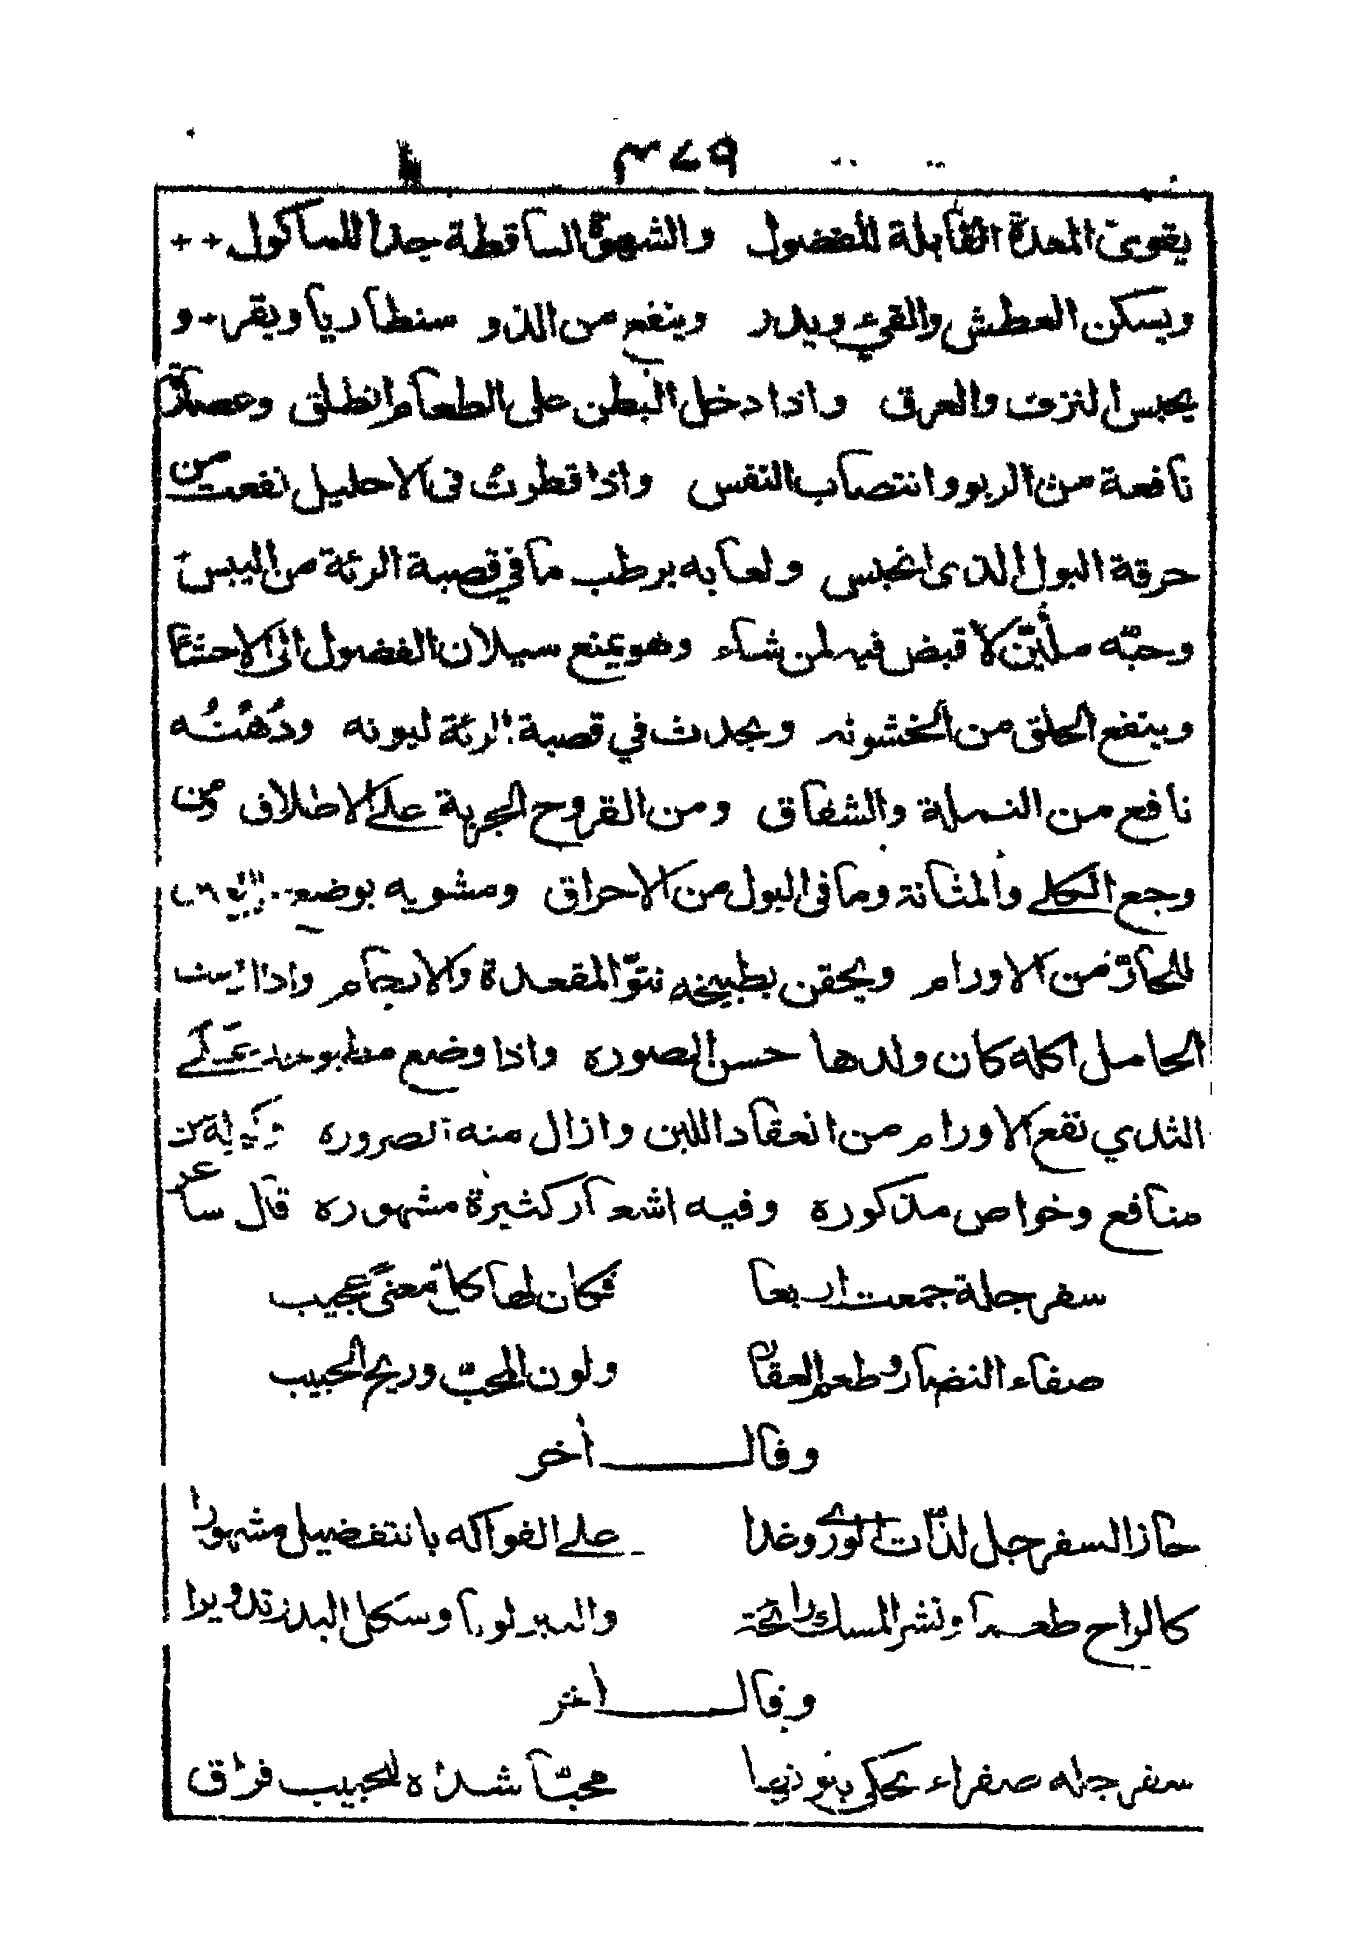 ٣٧٩
يقوى المعدة القابلة للفضول والشهوة الساقطة جدا للمأكول
ويسكن العطش والقيء ويدر وينفع من الذو سنطاريا ويقر و
يحبس النزف والعرق واذا دخل البطن على الطعام انطلق وعصارة
نافعة من الربو وانتصاب النفس واذا قطرت فى الاحليل نفعت من
حرقة البول الذى انحبس ولعابه يرطب ما في قصبة الرئة من اليبس
وحبّه مليّن لا قبض فيه لمن شاء وهو يمنع سيلان الفضول الى الاحشا
وينفع الحلق من الخشونه ويحدث في قصبة الرئة ليونه ودُهْنُه
نافع من النملة والشقاق ومن القروح الجربة على الاطلاق ومن
وجع الكلى والمثانة وما فى البول من الاحراق ومشويه يوضع
للحارّ من الاورام ويحقن بطبيخه نتوّ المقعدة والارحام واذا
الحامل اكله كان ولدها حسن الصوره واذا وضع مطبوخه على
الثدي نفع الاورام من انعقاد اللبن وازال منه الضروره
منافع وخواص مذكوره وفيه اشعار كثيرة مشهوره قال شاعر
سفرجلة جمعت اربعا فكان لها كل معنى عجيب
صفاء النضار وطعم العقار ولون المحبّ وريح الحبيب
وقال اخر
حاز السفرجل لذّات الورى وغدا على الفواكه بالتفضيل مشهورا
كالراح طعما ونشر المسك رائحة والتبر لونا وشكل البدر تدويرا
وقال اخر
سفرجله صفراء تحكى بلونها محبّا شداه للحبيب فراق